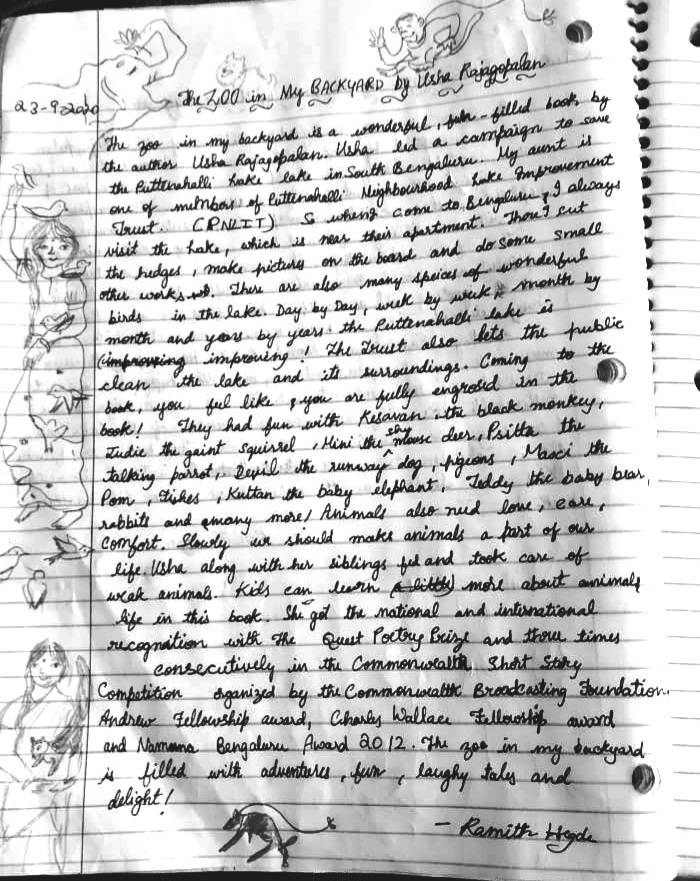 23-9-2020
The ZOO in My BACKYARD by Usha Rajagopalan
The zoo in my backyard is a wonderful, fun-filled book by
the author Usha Rajagopalan. Usha led a campaign to save
the Puttenahalli Lake lake in South Bengaluru. My aunt is
one of members of Puttenahalli Neighbourhood Lake Improvement
Trust. (PNLIT) So when I come to Bengaluru, I always
visit the Lake, which is near their apartment. There I cut
the hedges, make pictures on the board and do some small
other works. There are also many spices of wonderful
birds in the lake. Day by Day, week by week, month by
month and years by years the Puttenahalli lake is
improving! The Trust also lets the public
clean the lake and its surroundings. Coming to the
book, you feel like, you are fully engrosed in the
book! They had fun with Kesavan the black monkey,
Judie the gaint squirrel, Mini the shy mouse deer, Psitta the
talking parrot, Devil the runway dog, pigeons, Maoci the
Pom, Fishes, Kuttan the baby elephant, Teddy the baby bear,
rabbits and many more! Animals also need love, care,
comfort. Slowly we should make animals a part of our
life. Usha along with her siblings fed and took care of
weak animals. Kids can learn more about animals
life in this book. She got the national and international
recognition with The Quest Poetry Prize and three times
consecutively in the Commonwealth Short Story
Competition organized by the Commonwealth Broadcasting Foundation.
Andrew Fellowship award, Charles Wallace Fellowship award
and Namma Bengaluru Award 2012. The zoo in my backyard
is filled with adventures, fun, laughy tales and
delight!
- Ramith Hegde